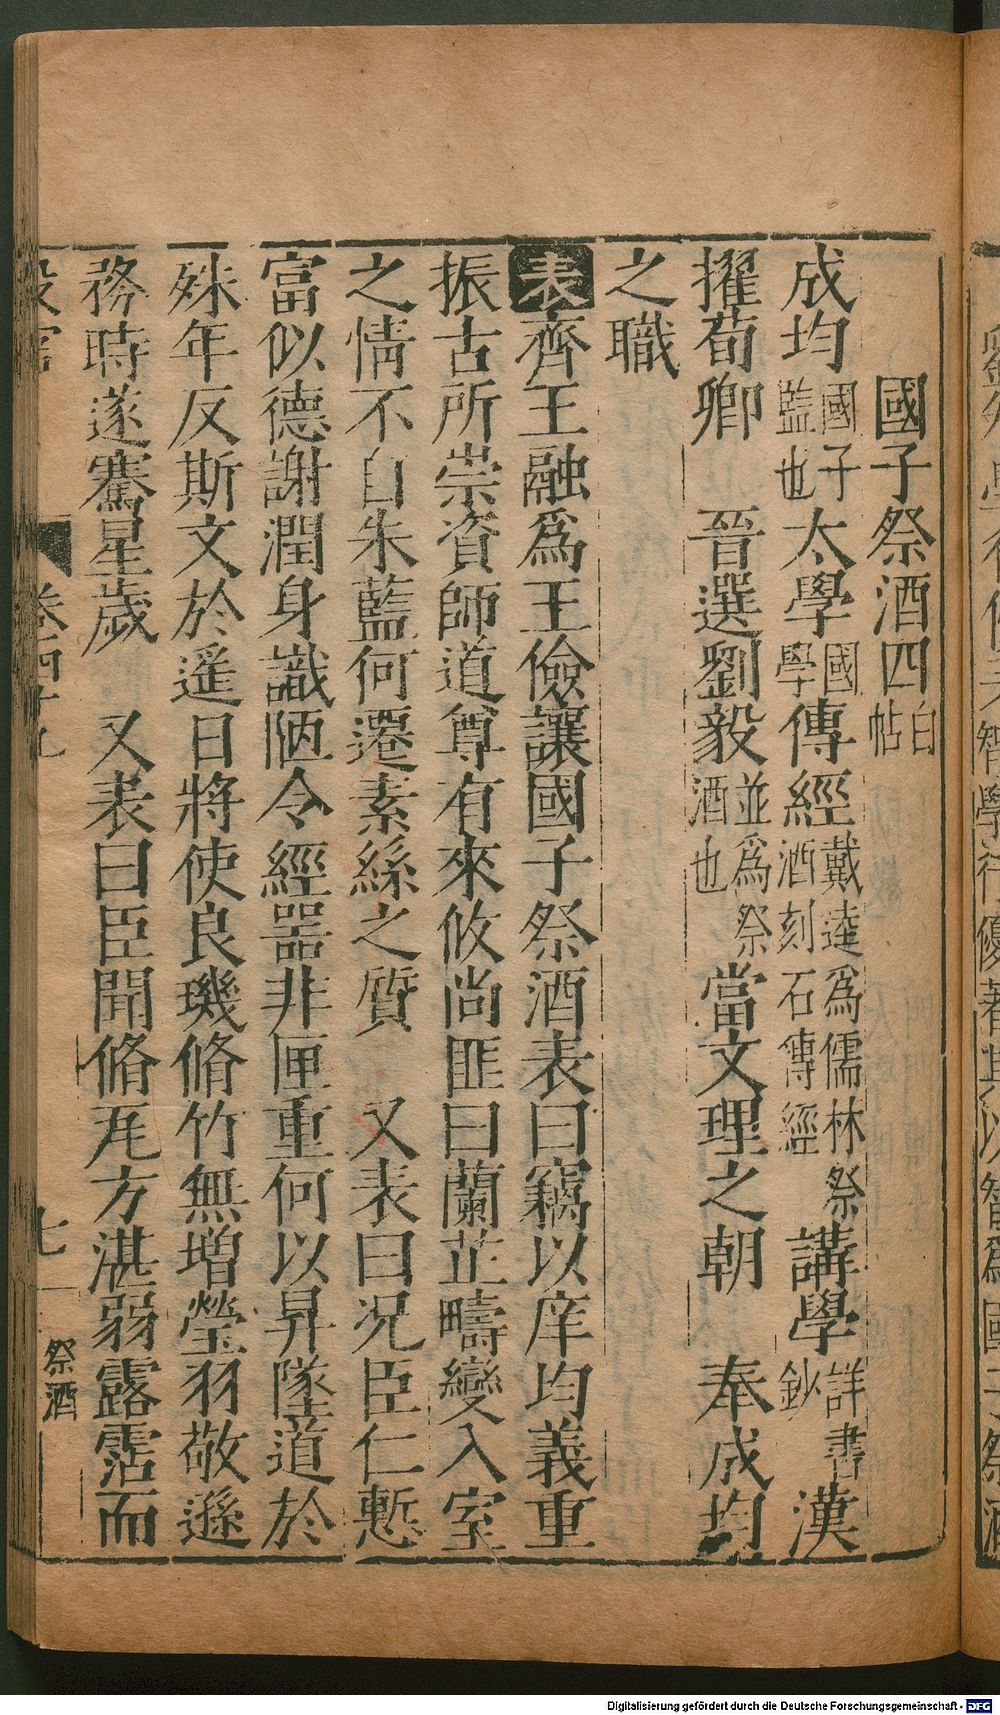 國子祭酒四白帖
成均國子監也太學國學傳經戴逵爲儒林祭酒刻石傳經講學詳書鈔漢
擢荀卿　晉選劉毅並爲祭酒也當文理之朝　奉成均
之職
表齊王融爲王儉讓國子祭酒表曰竊以庠均義重
振古所崇資師道尊有來攸尚匪曰蘭芷疇變入室
之情不自朱藍何遷素絲之質　又表曰况臣仁慙
富似德謝潤身識陋令經器非匣重何以昇墜道於
殊年反斯文於遙日將使良璣脩竹無增瑩羽敬遜
務時遂騫星歲　又表曰臣聞脩尾方湛弱露霑而
卷四十九
七
祭酒
智學行優著其以智爲國子祭酒
Digitalisierung gefördert durch die Deutsche Forschungsgemeinschaft - DFG